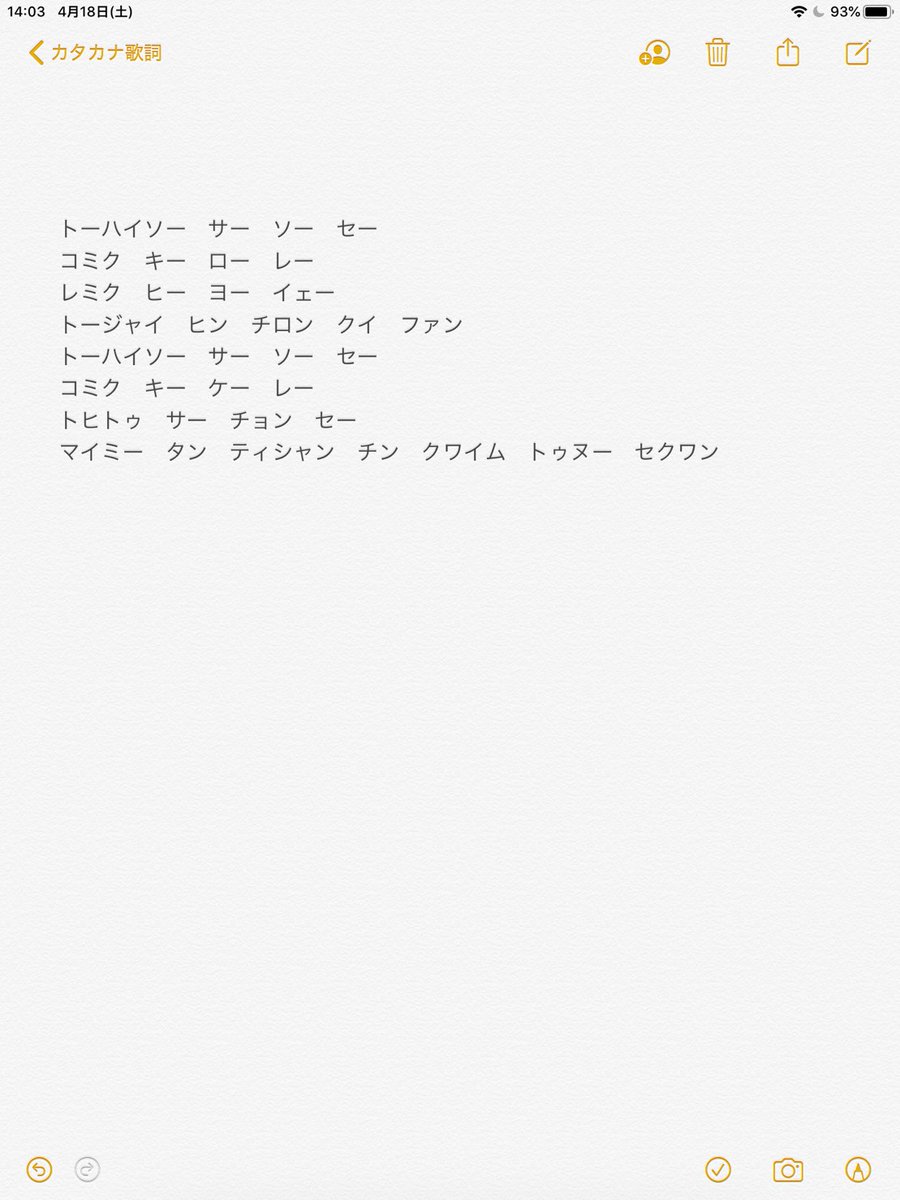 14:03 4月18日(土) 93%
カタカナ歌詞
トーハイソー　サー　ソー　セー
コミク　キー　ロー　レー
レミク　ヒー　ヨー　イェー
トージャイ　ヒン　チロン　クイ　ファン
トーハイソー　サー　ソー　セー
コミク　キー　ケー　レー
トヒトゥ　サー　チョン　セー
マイミー　タン　ティシャン　チン　クワイム　トゥヌー　セクワン